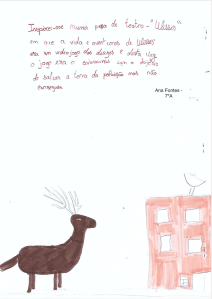 Inspirei-me numa peça de teatro - "Ulisses"
em que a vida e aventuras de Ulisses
era um video jogo dos deuses e desta vez
o jogo era o com o objetivo
de salvar a terra da poluição mas não
conseguia
Ana Fontes -
7ºA